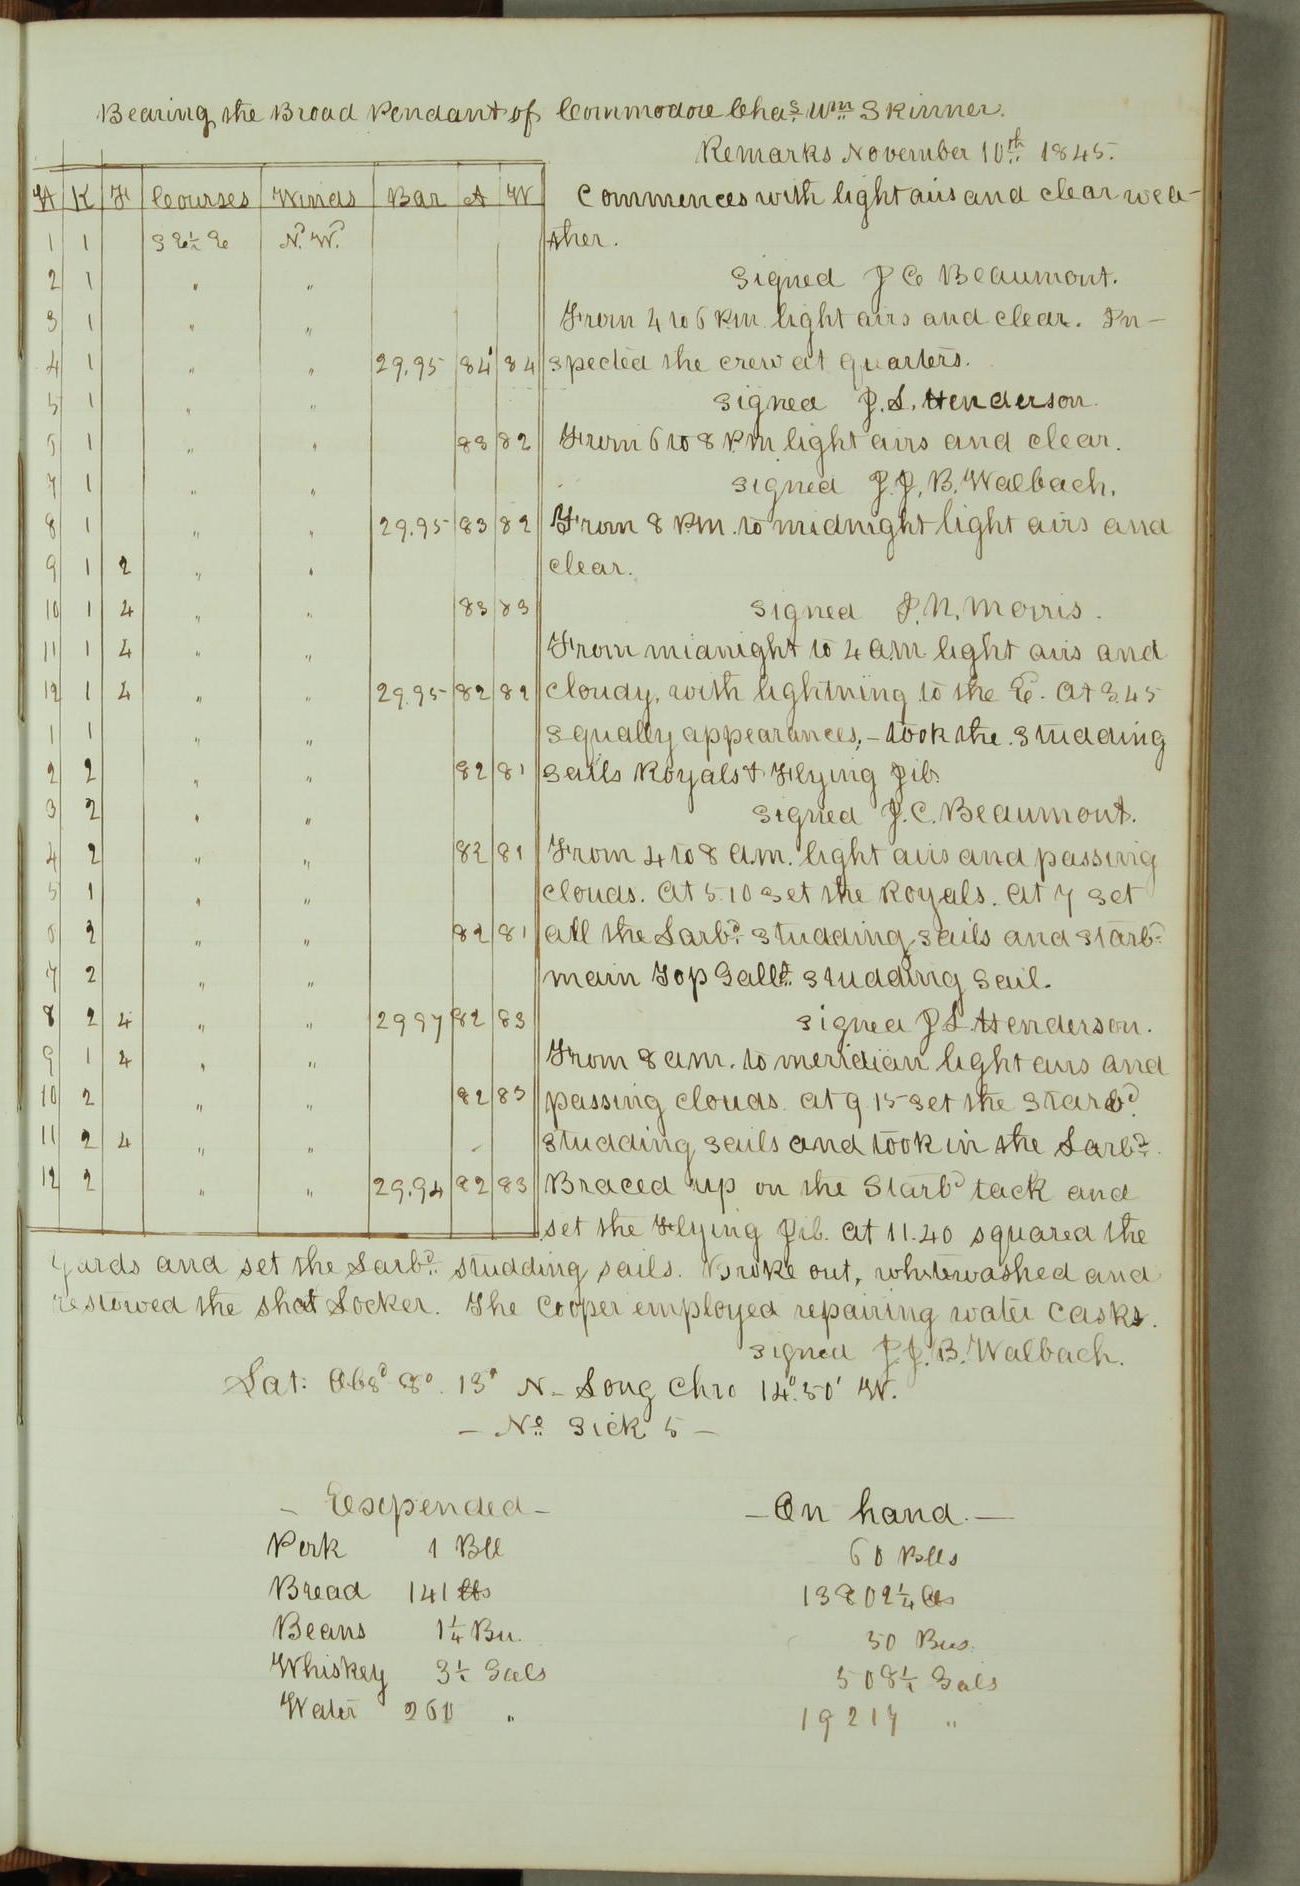 Bearing the Broad Pendant of Commodore Chas. Wm. Skinner.
Remarks November 10th 1845.
H K F Courses Winds Bar A W
Commences with light airs and clear wea-
1 1 S E ½ E N. W.
ther.
2 1 " "
Signed J C Beaumont.
3 1 " "
From 4 to 6 P.m. light airs and clear. In-
4 1 " " 29.95 84 84
spected the crew at quarters.
5 1 " "
Signed J. L. Henderson.
6 1 " " 83 82
From 6 to 8 P.M light airs and clear.
7 1 " "
Signed J. J. B. Walbach.
8 1 " " 29.95 83 82
From 8 P.M. to midnight light airs and
9 1 2 " "
clear.
10 1 4 " " 83 83
Signed I. N. Morris.
11 1 4 " "
From midnight to 4 a.m light airs and
12 1 4 " " 29.95 82 82
cloudy, with lightning to the E. At 3.45
1 1 " "
squally appearances, - took the studding
2 2 " " 82 81
sails Royals & Flying Jib
3 2 " "
Signed J. C. Beaumont.
4 2 " " 82 81
From 4 to 8 a.m. light airs and passing
5 1 " "
clouds. At 5.10 set the Royals. At 7 set
6 2 " " 82 81
all the Larbd. studding sails and Starbd.
7 2 " "
main Top Gallt. studding sail.
8 2 4 " " 29 97 82 83
Signed J L Henderson.
9 1 4 " "
From 8 a.m. to meridian light airs and
10 2 " " 82 83
passing clouds. At 9.15 set the Starbd.
11 2 4 " "
studding sails and took in the Larbd.
12 2 " " 29.94 82 83
Braced up on the Starbd tack and
set the Flying Jib. At 11.40 squared the
yards and set the Larbd. studding sails. Broke out, whitewashed and
restowed the shot Locker. The Cooper employed repairing water casks.
Signed J. J. B. Walbach.
Lat: Obsd 8° 13' N - Long Chro 14° 50' W.
- No. Sick 5 -
- Expended - - On hand. -
Pork 1 Bbl 60 Bbls
Bread 141 lbs 13802¼ lbs
Beans 1¼ Bu. 50 Bus.
Whiskey 3½ Gals 508½ Gals
Water 260 " 19217 "